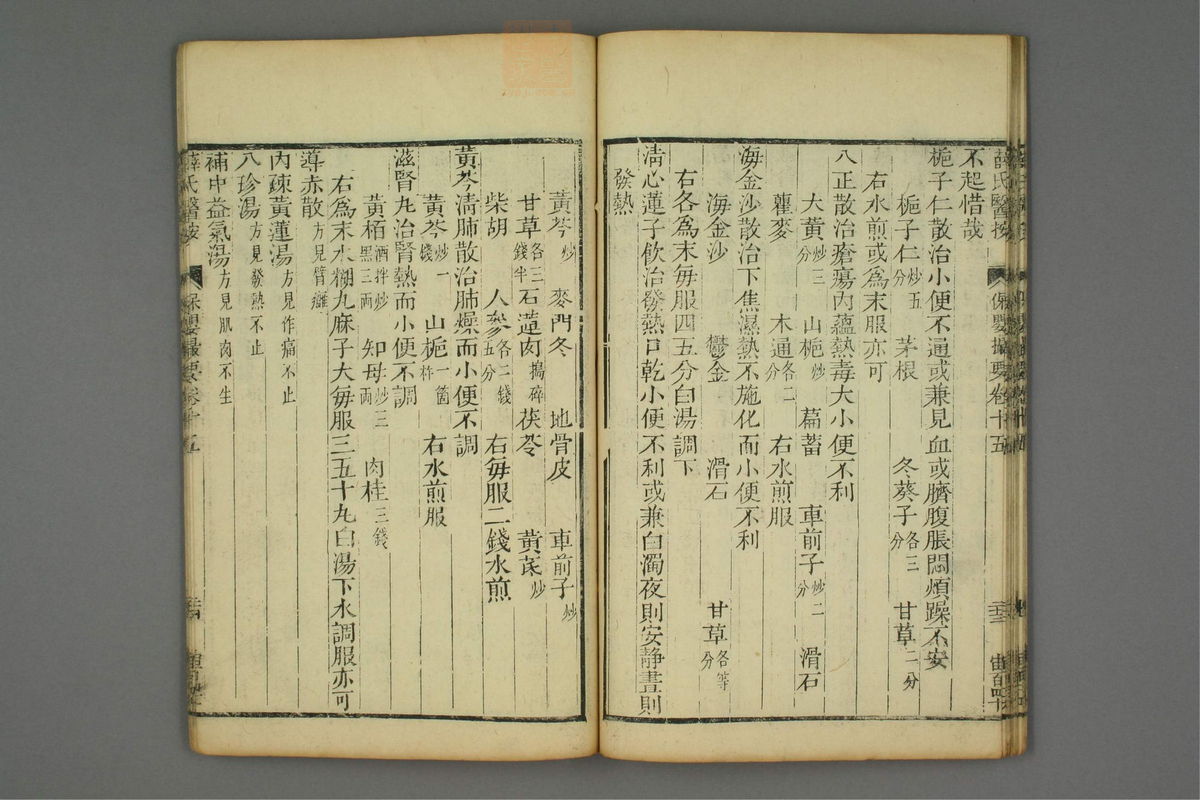 薛氏醫按
保嬰撮要卷十五
不起惜哉
梔子仁散治小便不通或兼見血或臍腹脹悶煩躁不安
梔子仁炒五分 茅根 冬葵子各三分 甘草二分
右水煎或爲末服亦可
八正散治瘡瘍內蘊熱毒大小便不利
大黃炒三分 山梔炒 萹蓄 車前子炒二分 滑石
瞿麥 木通各二分 右水煎服
海金沙散治下焦濕熱不施化而小便不利
海金沙 鬱金 滑石 甘草各等分
右各爲末每服四五分白湯調下
淸心蓮子飮治發熱口乾小便不利或兼白濁夜則安靜晝則
發熱
黃芩炒 麥門冬 地骨皮 車前子炒
甘草各三錢半 石蓮肉搗碎 茯苓 黃芪炒
柴胡 人參各二錢五分 右每服二錢水煎
黃芩淸肺散治肺燥而小便不調
黃芩炒一錢 山梔一箇杵 右水煎服
滋腎丸治腎熱而小便不調
黃栢酒拌炒黑三兩 知母炒三兩 肉桂三錢
右爲末水糊丸麻子大每服三五十丸白湯下水調服亦可
導赤散方見臂癰
內疎黃蓮湯方見作痛不止
八珍湯方見發熱不止
補中益氣湯方見肌肉不生
薛氏醫按
保嬰撮要卷十五